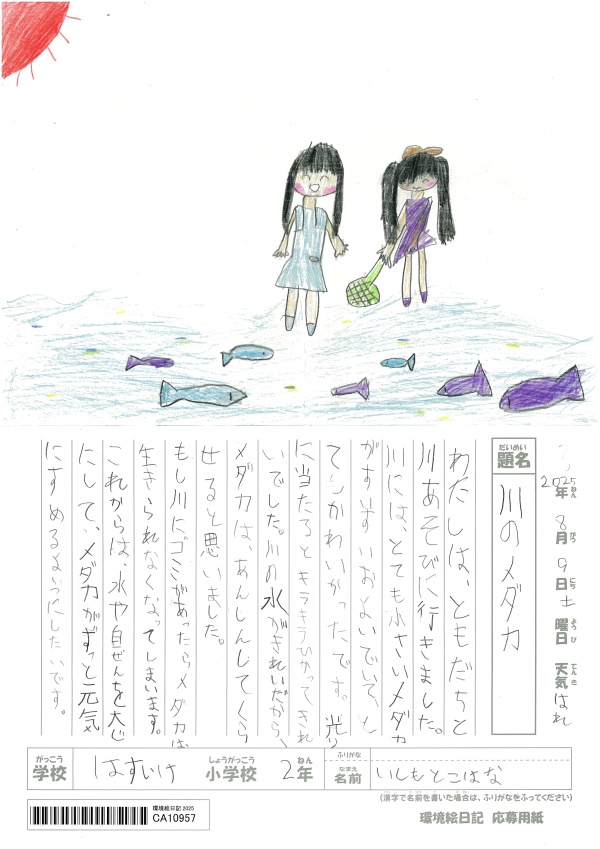 年 8月 9日 土曜日 天気 はれ
だいめい
題名 川のメダカ
わたしは、ともだちと
川あそびに行きました。
川には、とても小さいメダカ
がすいすいおよいでいて、と
てもかわいかったです。光
に当たるとキラキラひかってきれ
いでした。川の水がきれいだから、
メダカは、あんしんしてくら
せると思いました。
もし川にゴミがあったらメダカは
生きられなくなってしまいます。
これからは、水や自ぜんを大じ
にして、メダカがずっと元気
にすめるようにしたいです。
がっこう しょうがっこう ねん ふりがな
学校 はすいけ 小学校 2年 なまえ 名前 いしもとこはな
(漢字で名前を書いた場合は、ふりがなをふってください)
環境絵日記 応募用紙
環境絵日記 2025
CA10957